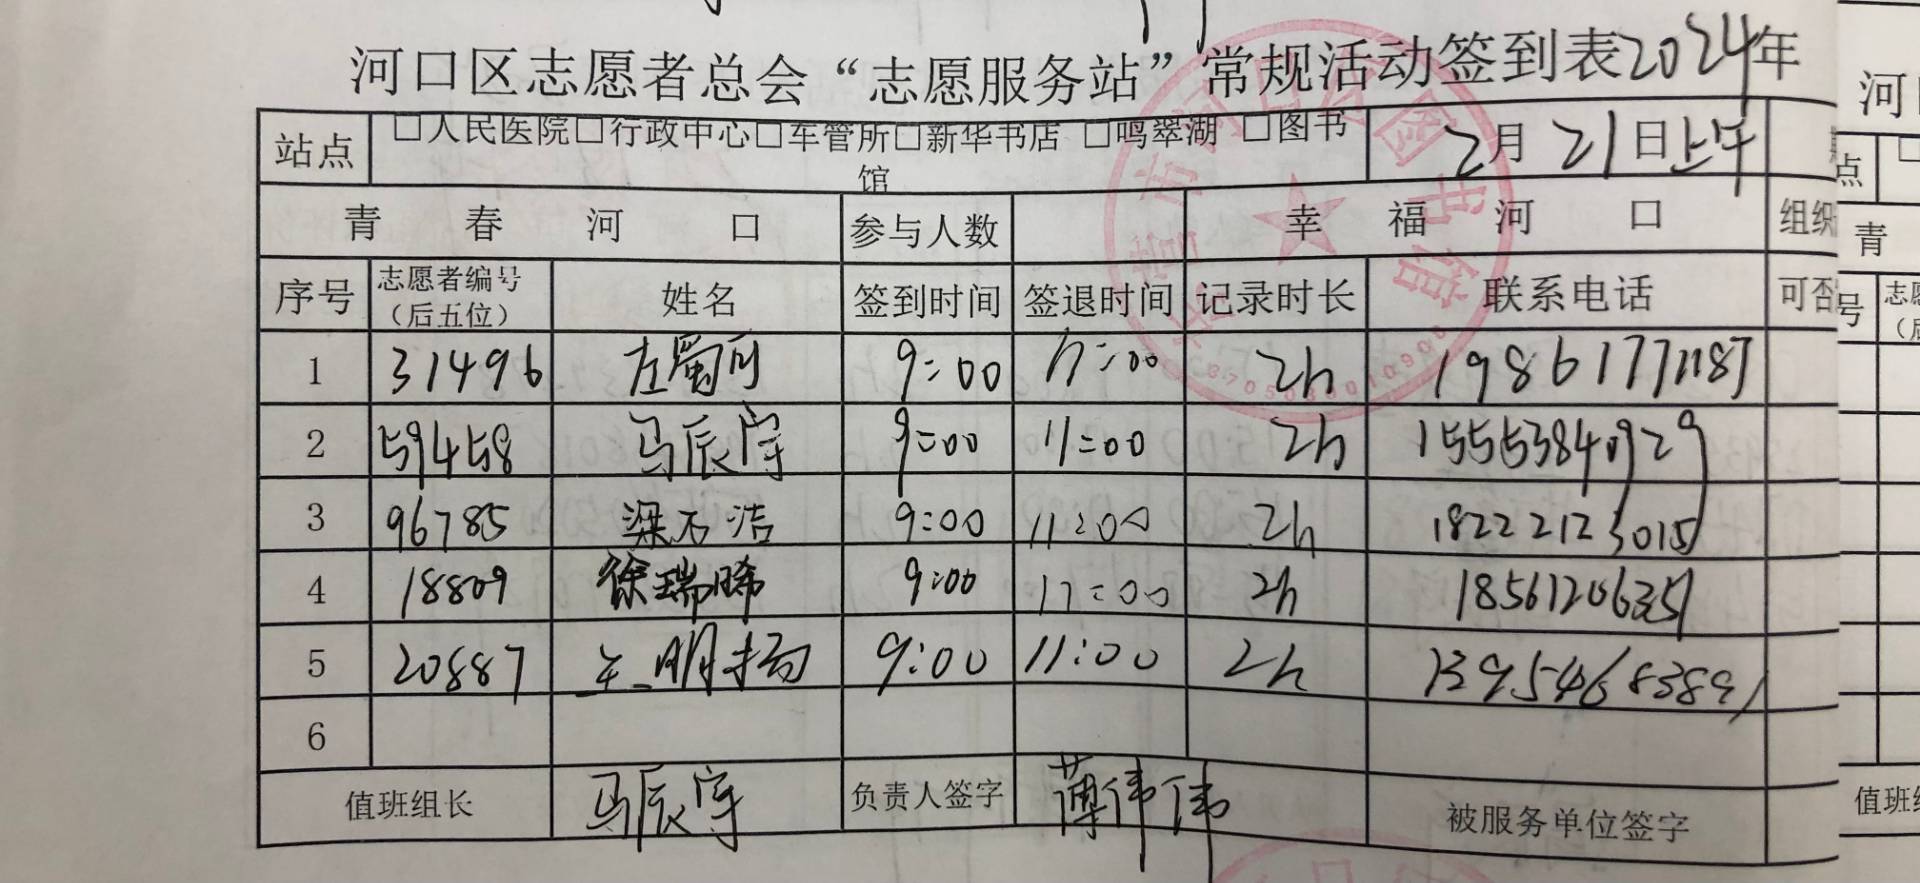 河口区志愿者总会“志愿服务站”常规活动签到表2024年
站点 □人民医院□行政中心□车管所□新华书店 □鸣翠湖 □图书馆 2月21日上午
青春河口 参与人数 幸福河口 组织
序号 志愿者编号（后五位） 姓名 签到时间 签退时间 记录时长 联系电话 可否
1 31496 左蜀可 9:00 11:00 2h
2 59458 马辰宇 9:00 11:00 2h 15553840929
3 96785 梁石洁 9:00 11:00 2h 18222123015
4 18809 徐瑞晞 9:00 11:00 2h 18561206351
5 20887 王明扬 9:00 11:00 2h
6
值班组长 马辰宇 负责人签字 薄伟伟 被服务单位签字
河
点
青
号 志愿
值班组